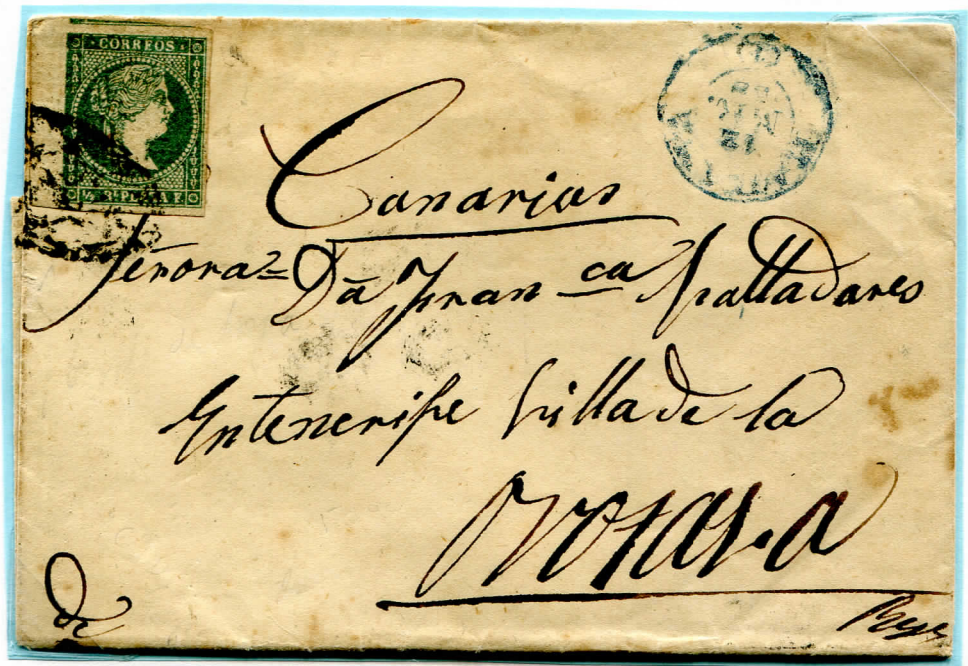 CORREOS
Canarias
Señora Da Fran ca Valladares
En tenerife Villa de la
Orotava